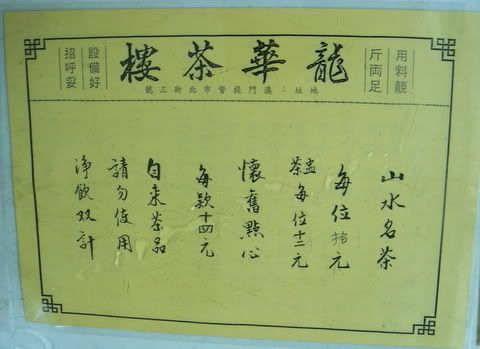 用料靚
斤両足
龍華茶樓
地址：澳門提督市北街三號
設備好
招呼妥
山水名茶
每位拾元
盅茶每位十二元
懷舊點心
每款十四元
自來茶品
請勿使用
净飲双計